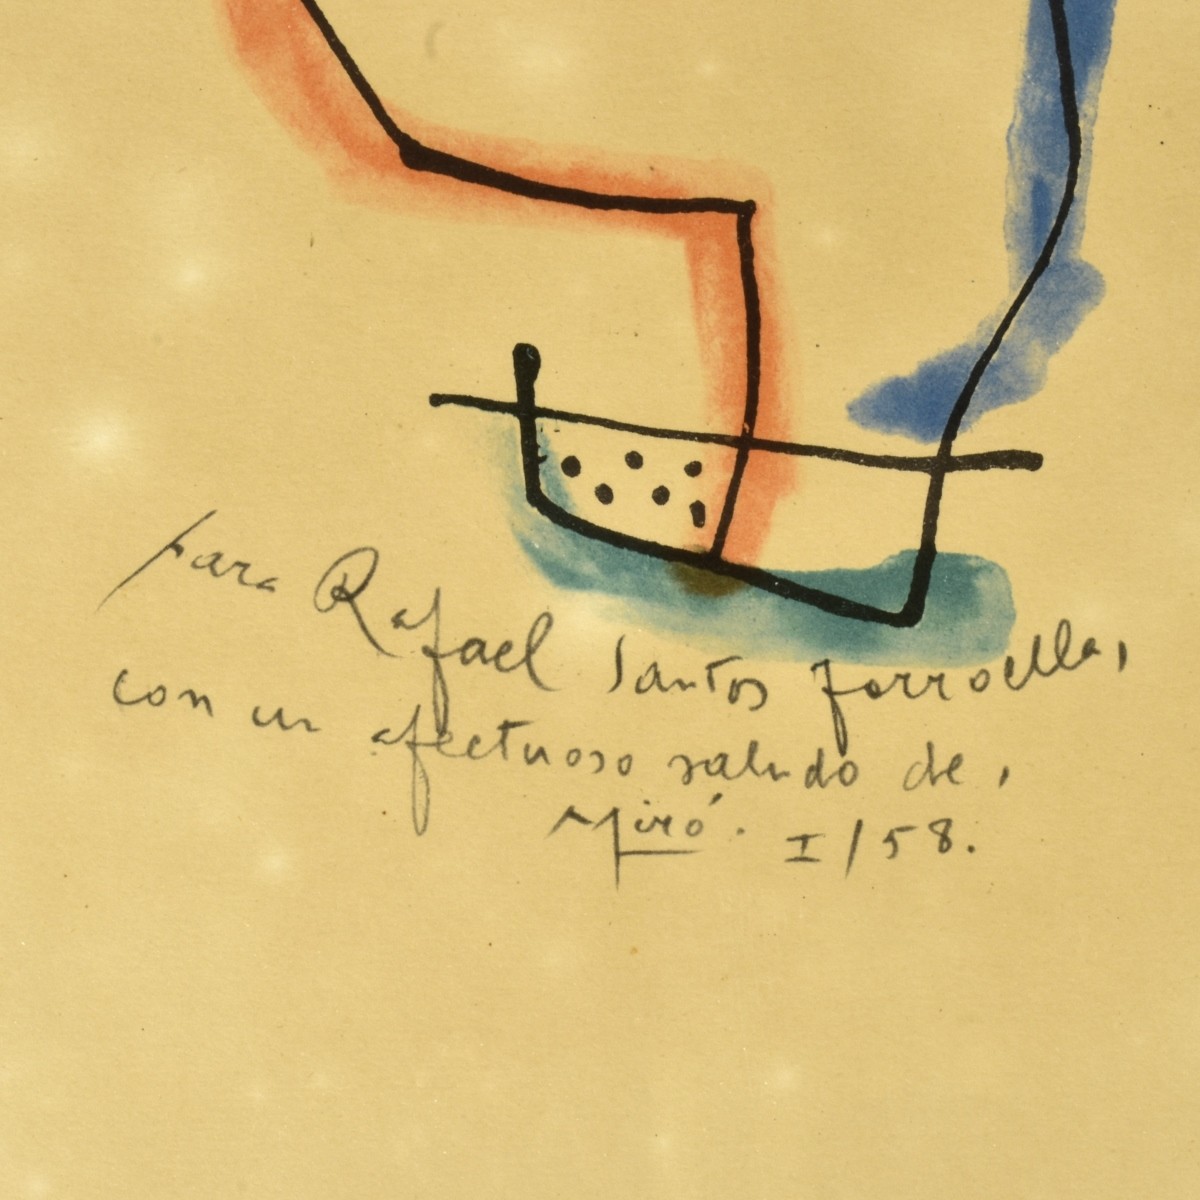 para Rafael Santos Torroella,
con un afectuoso saludo de,
Miró. I/58.